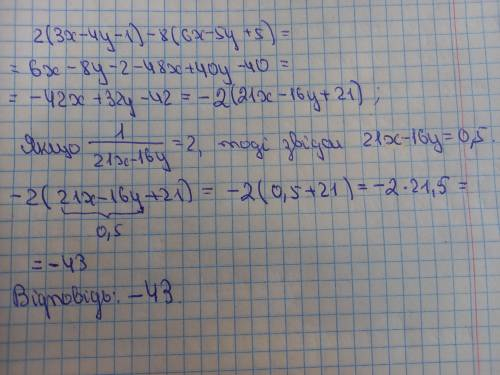 2(3x-4y-1)-8(6x-5y+5)=
= 6x-8y-2-48x+40y-40 =
= -42x+32y-42 = -2(21x-16y+21);
Якщо 1/(21x-16y) =2, тоді звідси 21x-16y=0,5.
-2(21x-16y+21) = -2(0,5+21)=-2·21,5=
0,5
= -43
Відповідь: -43.